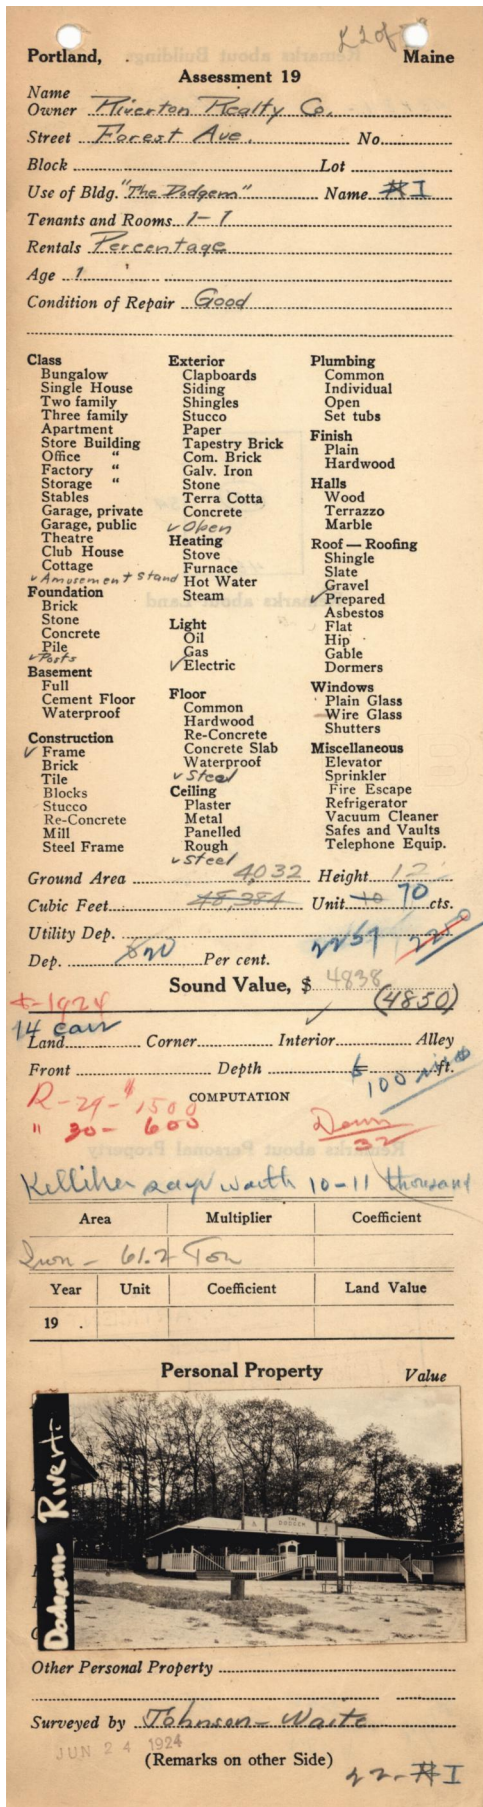 Portland, Maine
Assessment 19
Name
Owner Riverton Realty Co.
Street Forest Ave. No.
Block Lot
Use of Bldg. "The Dodgem" Name #I
Tenants and Rooms 1-1
Rentals Percentage
Age 1
Condition of Repair Good
Class
Bungalow
Single House
Two family
Three family
Apartment
Store Building
Office "
Factory "
Storage "
Stables
Garage, private
Garage, public
Theatre
Club House
Cottage
✓ Amusement Stand
Foundation
Brick
Stone
Concrete
Pile
✓ Posts
Basement
Full
Cement Floor
Waterproof
Construction
✓ Frame
Brick
Tile
Blocks
Stucco
Re-Concrete
Mill
Steel Frame
Exterior
Clapboards
Siding
Shingles
Stucco
Paper
Tapestry Brick
Com. Brick
Galv. Iron
Stone
Terra Cotta
Concrete
✓ Open
Heating
Stove
Furnace
Hot Water
Steam
Light
Oil
Gas
✓ Electric
Floor
Common
Hardwood
Re-Concrete
Concrete Slab
Waterproof
✓ Steel
Ceiling
Plaster
Metal
Panelled
Rough
✓ Steel
Plumbing
Common
Individual
Open
Set tubs
Finish
Plain
Hardwood
Halls
Wood
Terrazzo
Marble
Roof — Roofing
Shingle
Slate
Gravel
✓ Prepared
Asbestos
Flat
Hip
Gable
Dormers
Windows
Plain Glass
Wire Glass
Shutters
Miscellaneous
Elevator
Sprinkler
Fire Escape
Refrigerator
Vacuum Cleaner
Safes and Vaults
Telephone Equip.
Ground Area 4032 Height 12
Cubic Feet 48,384 Unit 10 70 cts.
Utility Dep. 2257 2250
Dep. 20 Per cent.
Sound Value, $ 4838
(4850)
1924
14 cars
Land Corner Interior ✓ Alley
Front Depth ft.
100
COMPUTATION
R-29- $1500
" 30- 600
Down
32
Kelliher says worth 10-11 thousand
Area Multiplier Coefficient
Iron - 61.2 Ton
Year Unit Coefficient Land Value
19 .
Personal Property Value
Dodgem Rivert.
THE
DODGEM
Other Personal Property
Surveyed by Johnson-Waite
JUN 24 1924
(Remarks on other Side)
22-#I